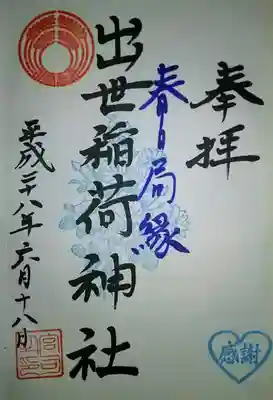 奉拝
春日局縁
出世稲荷神社
平成二十八年六月十八日
感謝